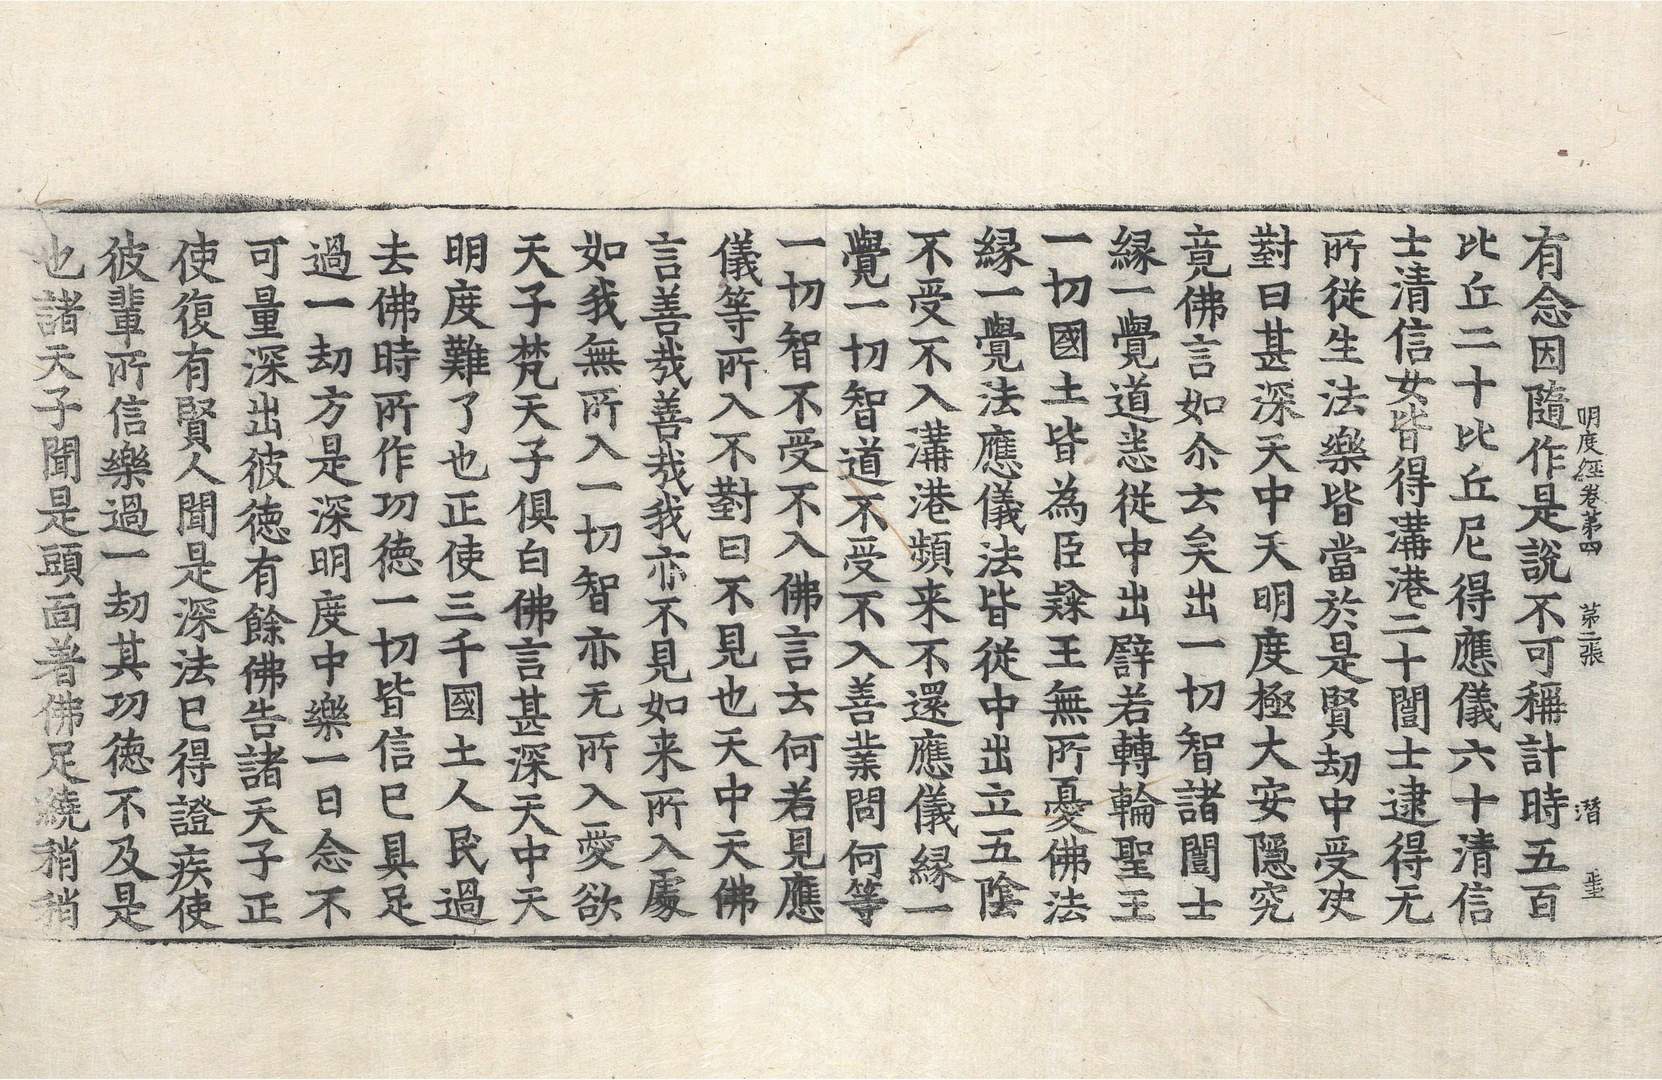 明度經卷第四 第二張 潛 𠱾
有念因隨作是說不可稱計時五百
比丘二十比丘尼得應儀六十清信
士清信女皆得溝港二十闓士逮得无
所從生法樂皆當於是賢劫中受决
對曰甚深天中天明度極大安隱究
竟佛言如尒去矣出一切智諸闓士
緣一覺道悉從中出譬若轉輪聖王
一切國土皆為臣𨽻王無所憂佛法
緣一覺法應儀法皆從中出立五陰
不受不入溝港頻来不還應儀緣一
覺一切智道不受不入善業問何等
一切智不受不入佛言云何若見應
儀等所入不對曰不見也天中天佛
言善哉善哉我亦不見如来所入處
如我無所入一切智亦无所入愛欲
天子梵天子俱白佛言甚深天中天
明度難了也正使三千國土人民過
去佛時所作功德一切皆信已具足
過一劫方是深明度中樂一日念不
可量深出彼德有餘佛告諸天子正
使復有賢人聞是深法已得證疾使
彼輩所信樂過一劫其功德不及是
也諸天子聞是頭面著佛足繞稍稍